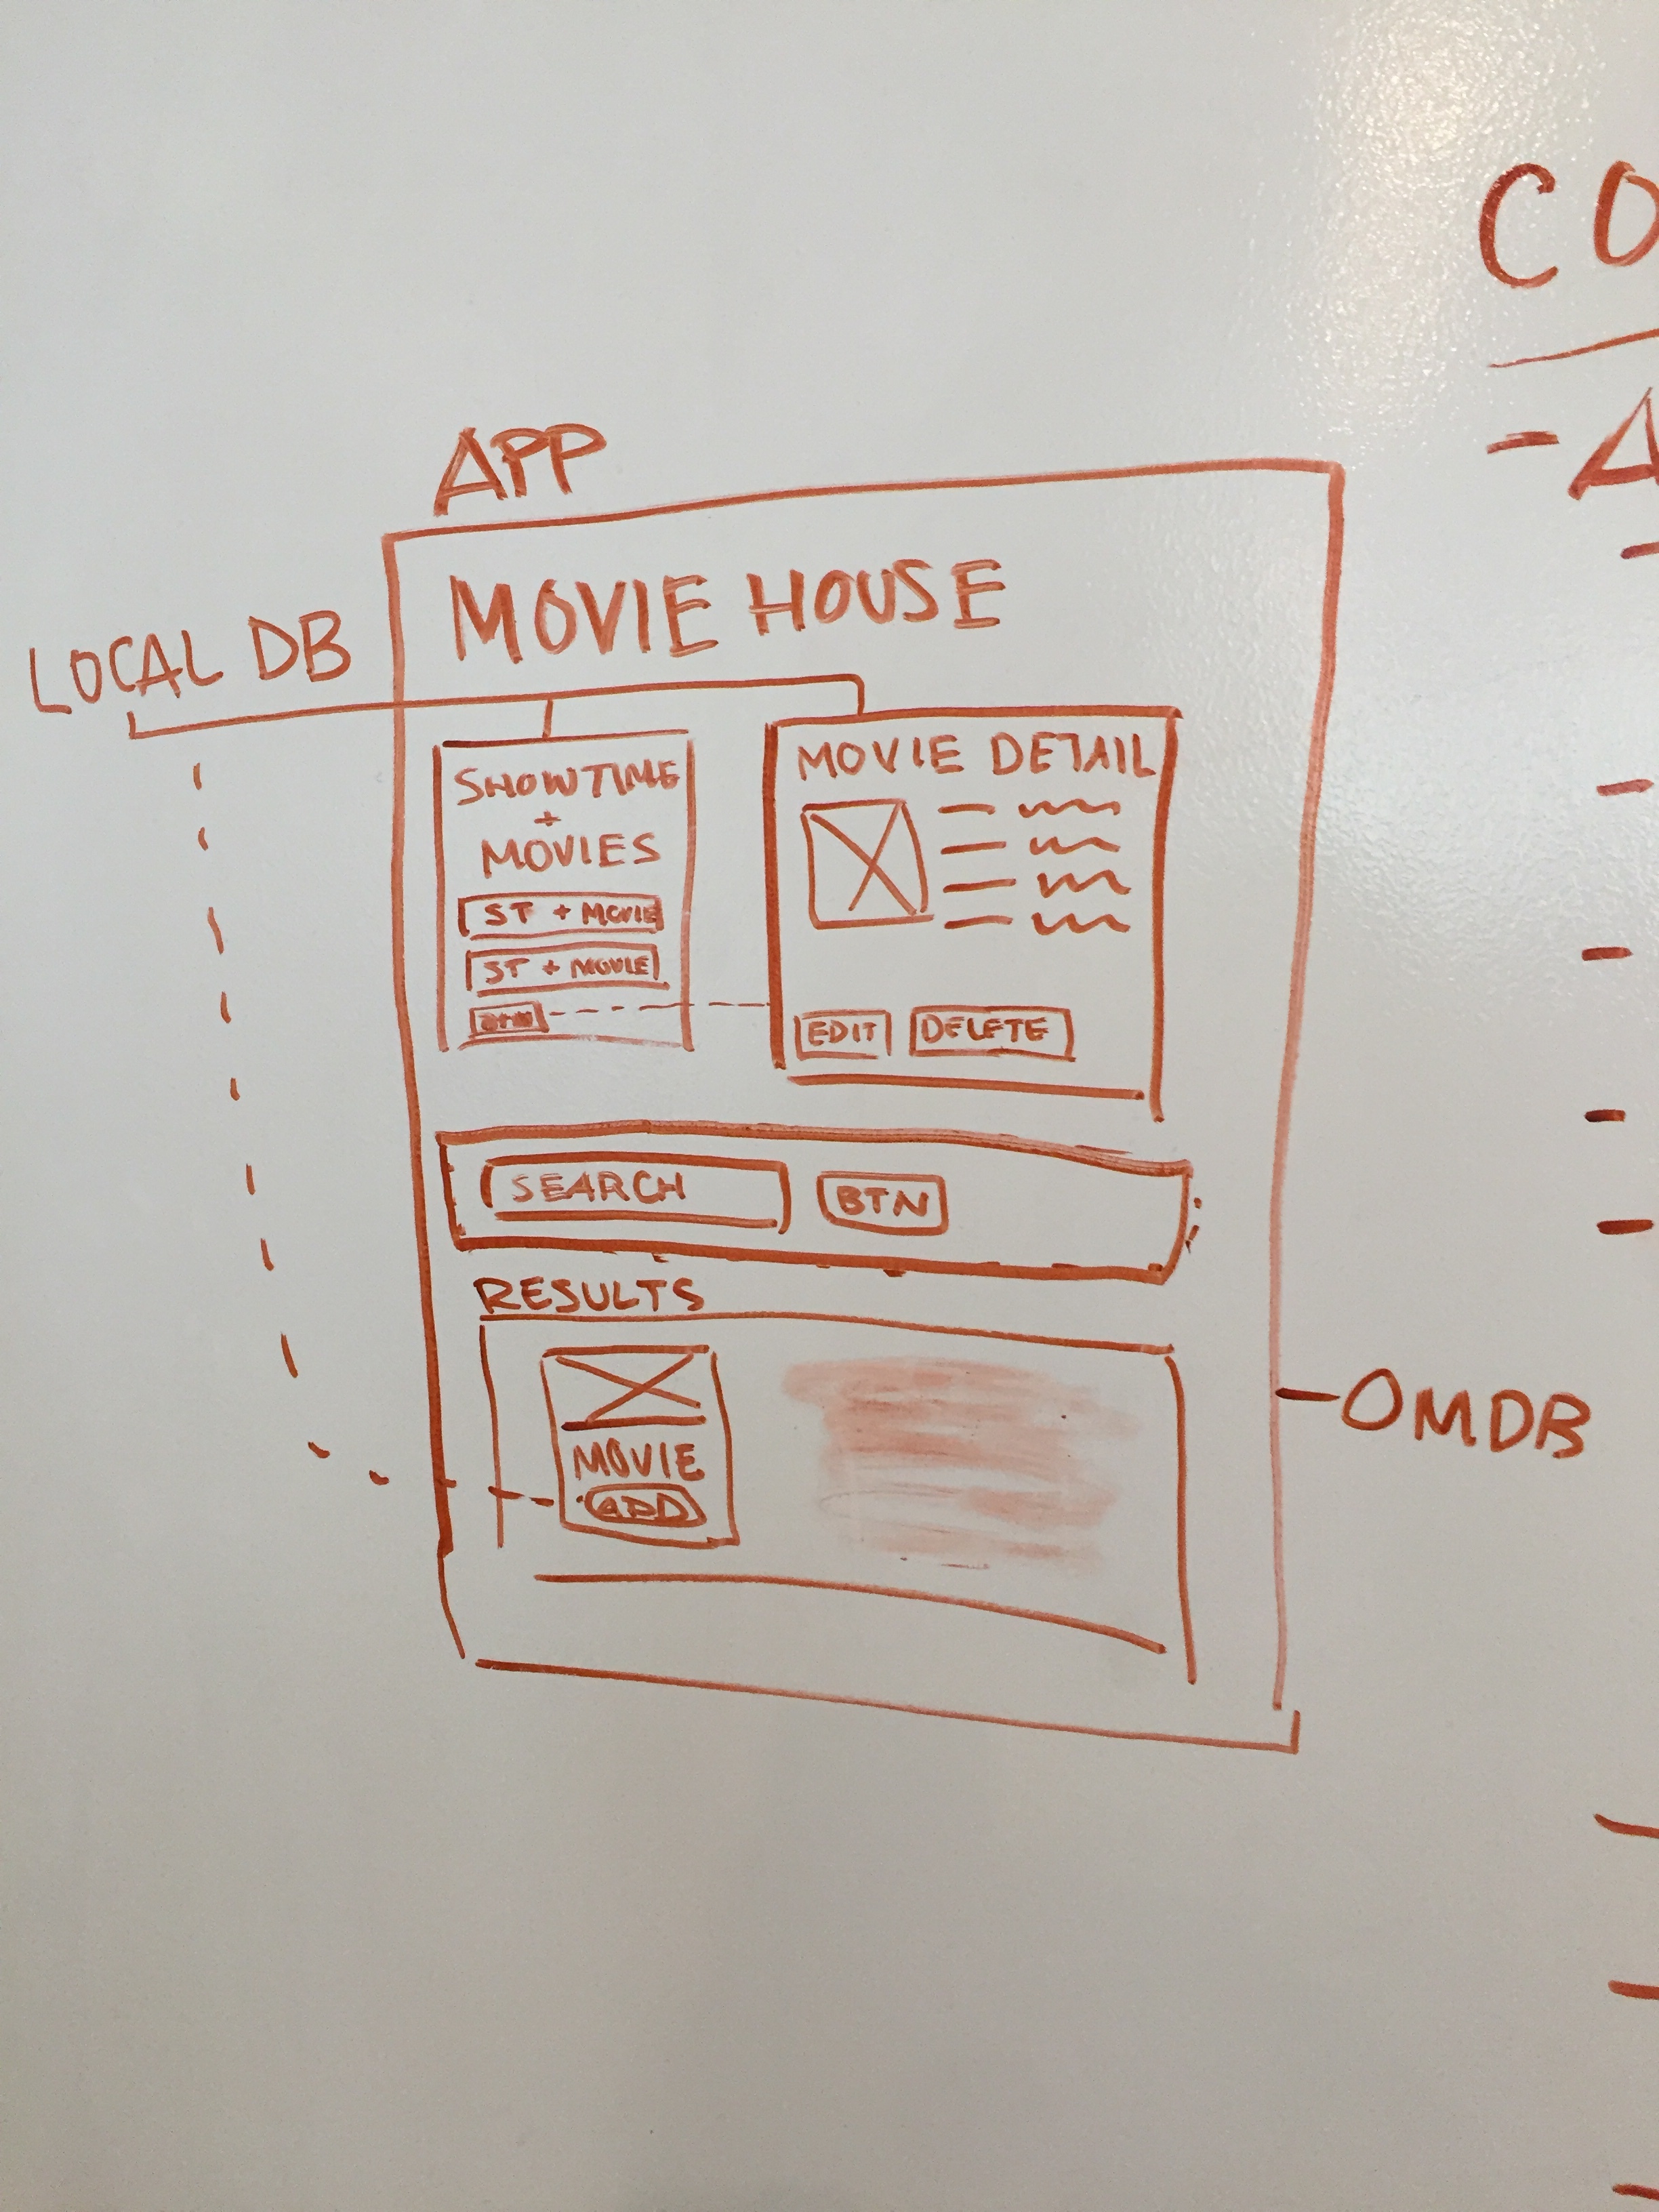 CO
- A
APP
MOVIE HOUSE
LOCAL DB
SHOWTIME
+
MOVIES
ST + MOVIE
ST + MOVIE
BTN
MOVIE DETAIL
EDIT
DELETE
SEARCH
BTN
RESULTS
MOVIE
ADD
- OMDB